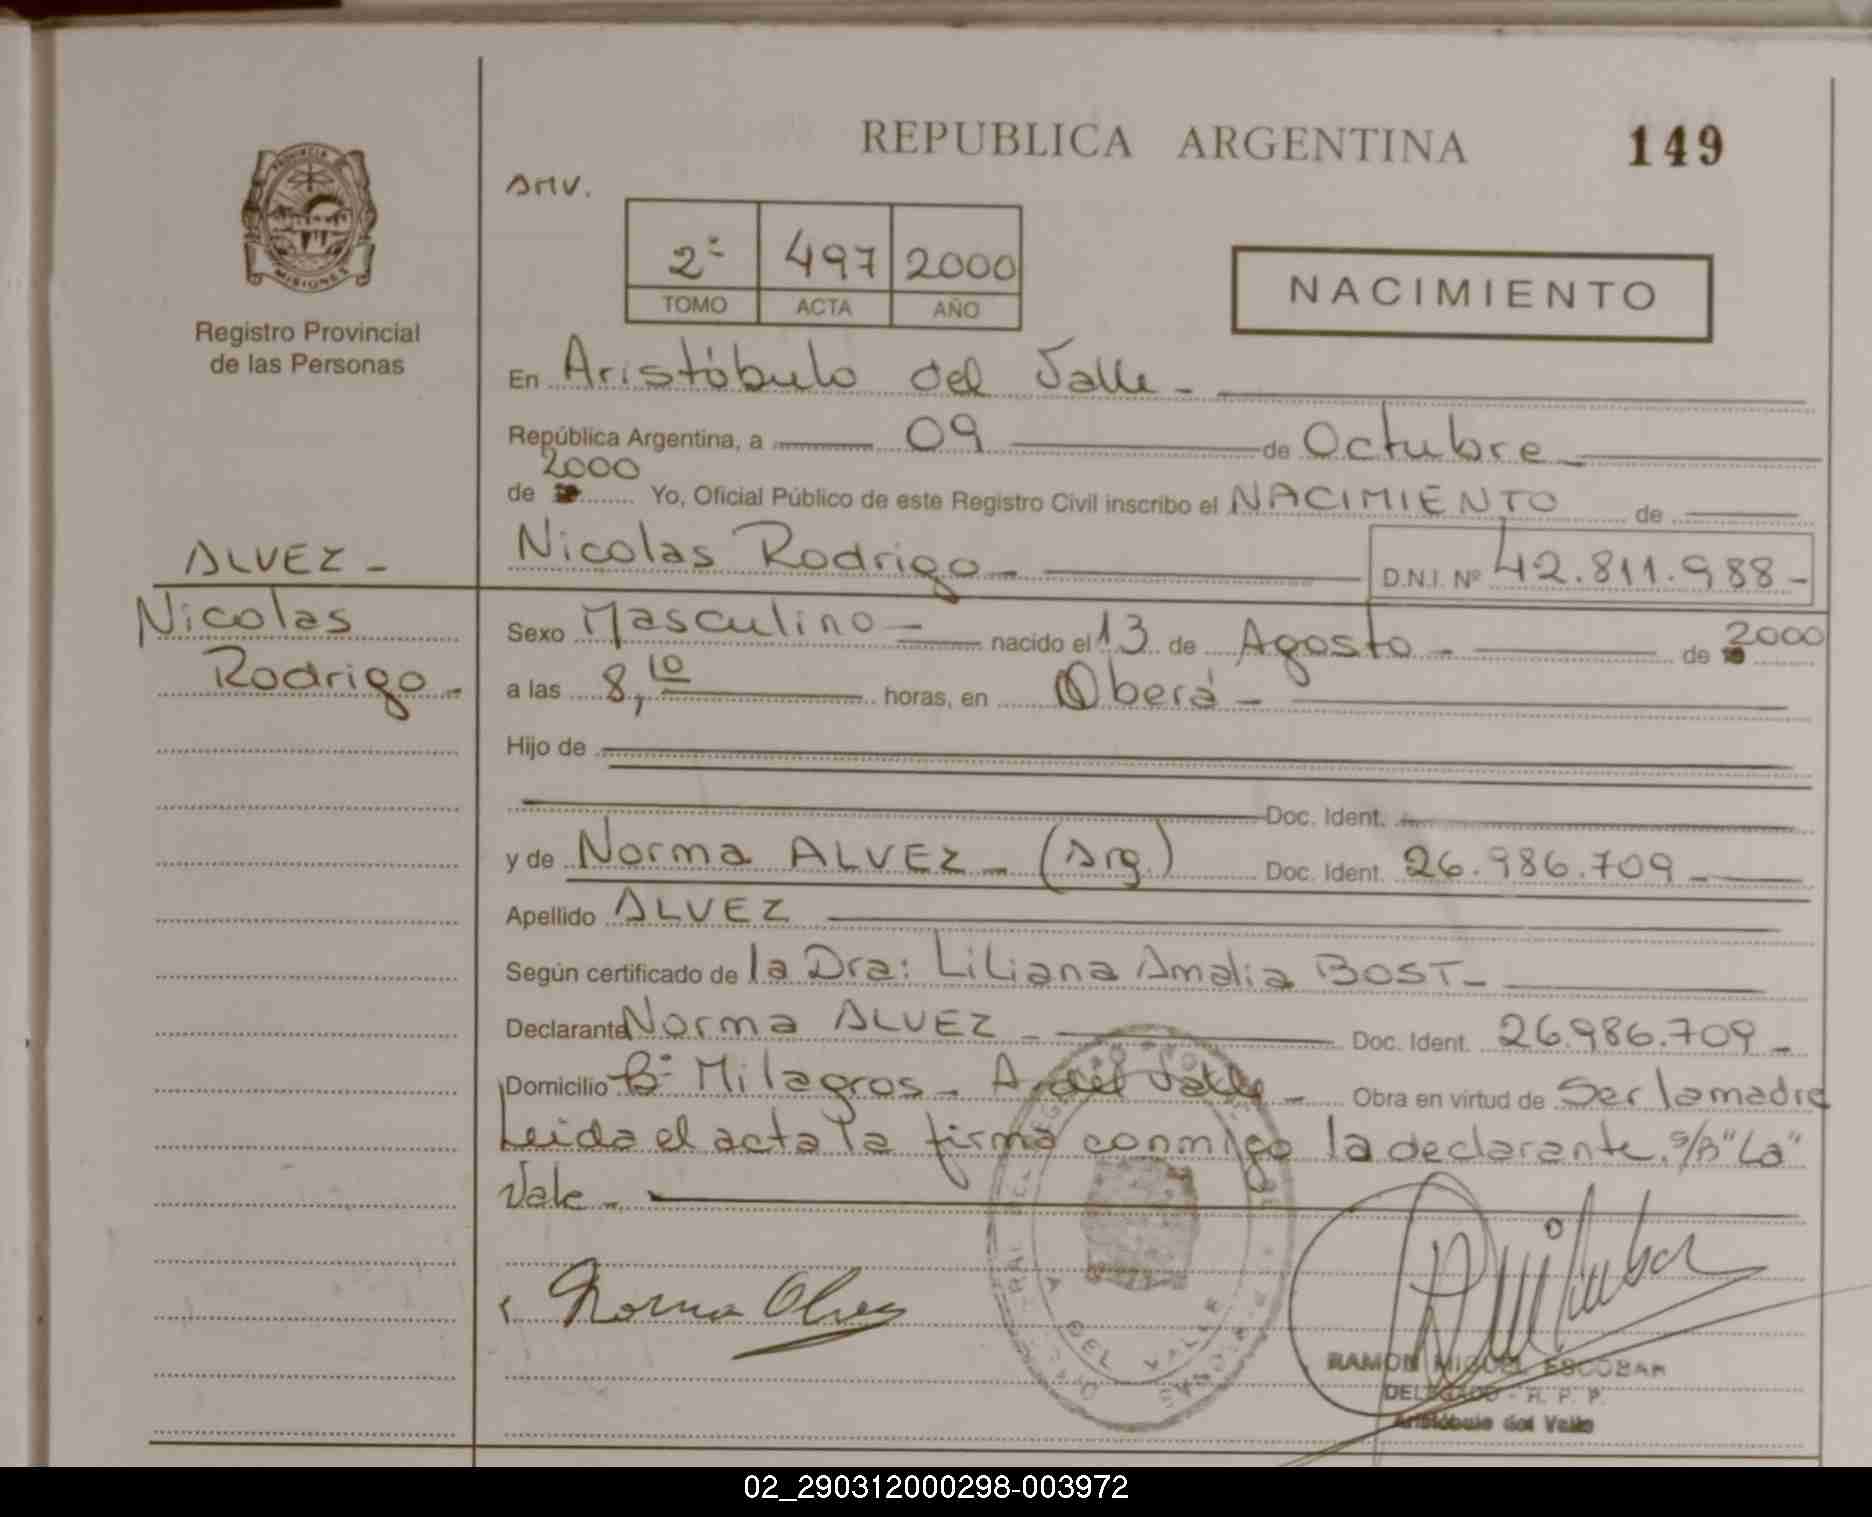 REPUBLICA ARGENTINA
149
PROVINCIA
MISIONES
Registro Provincial
de las Personas
AMV.
2º 497 2000
TOMO ACTA AÑO
NACIMIENTO
En Aristóbulo del Valle -
República Argentina, a 09 de Octubre
2000
de 19 Yo, Oficial Público de este Registro Civil inscribo el NACIMIENTO de
Nicolas Rodrigo - D.N.I. Nº 42.811.988-
ALVEZ -
Nicolas
Rodrigo -
Sexo Masculino - nacido el 13 de Agosto - de 2000
a las 8,10 horas, en Oberá -
Hijo de
Doc. Ident.
y de Norma ALVEZ - (Arg.) Doc. Ident. 26.986.709 -
Apellido ALVEZ
Según certificado de la Dra: Liliana Amalia BOST -
Declarante Norma ALVEZ - Doc. Ident. 26.986.709 -
Domicilio Bº Milagros - A. del Valle - Obra en virtud de Ser la madre
Leida el acta la firma conmigo la declarante. s/B "La"
Vale -
Norma Alves
A DEL VALLE
RAMON MIGUEL ESCOBAR
DELEGADO - R. P. P.
Aristóbulo del Valle
02_290312000298-003972